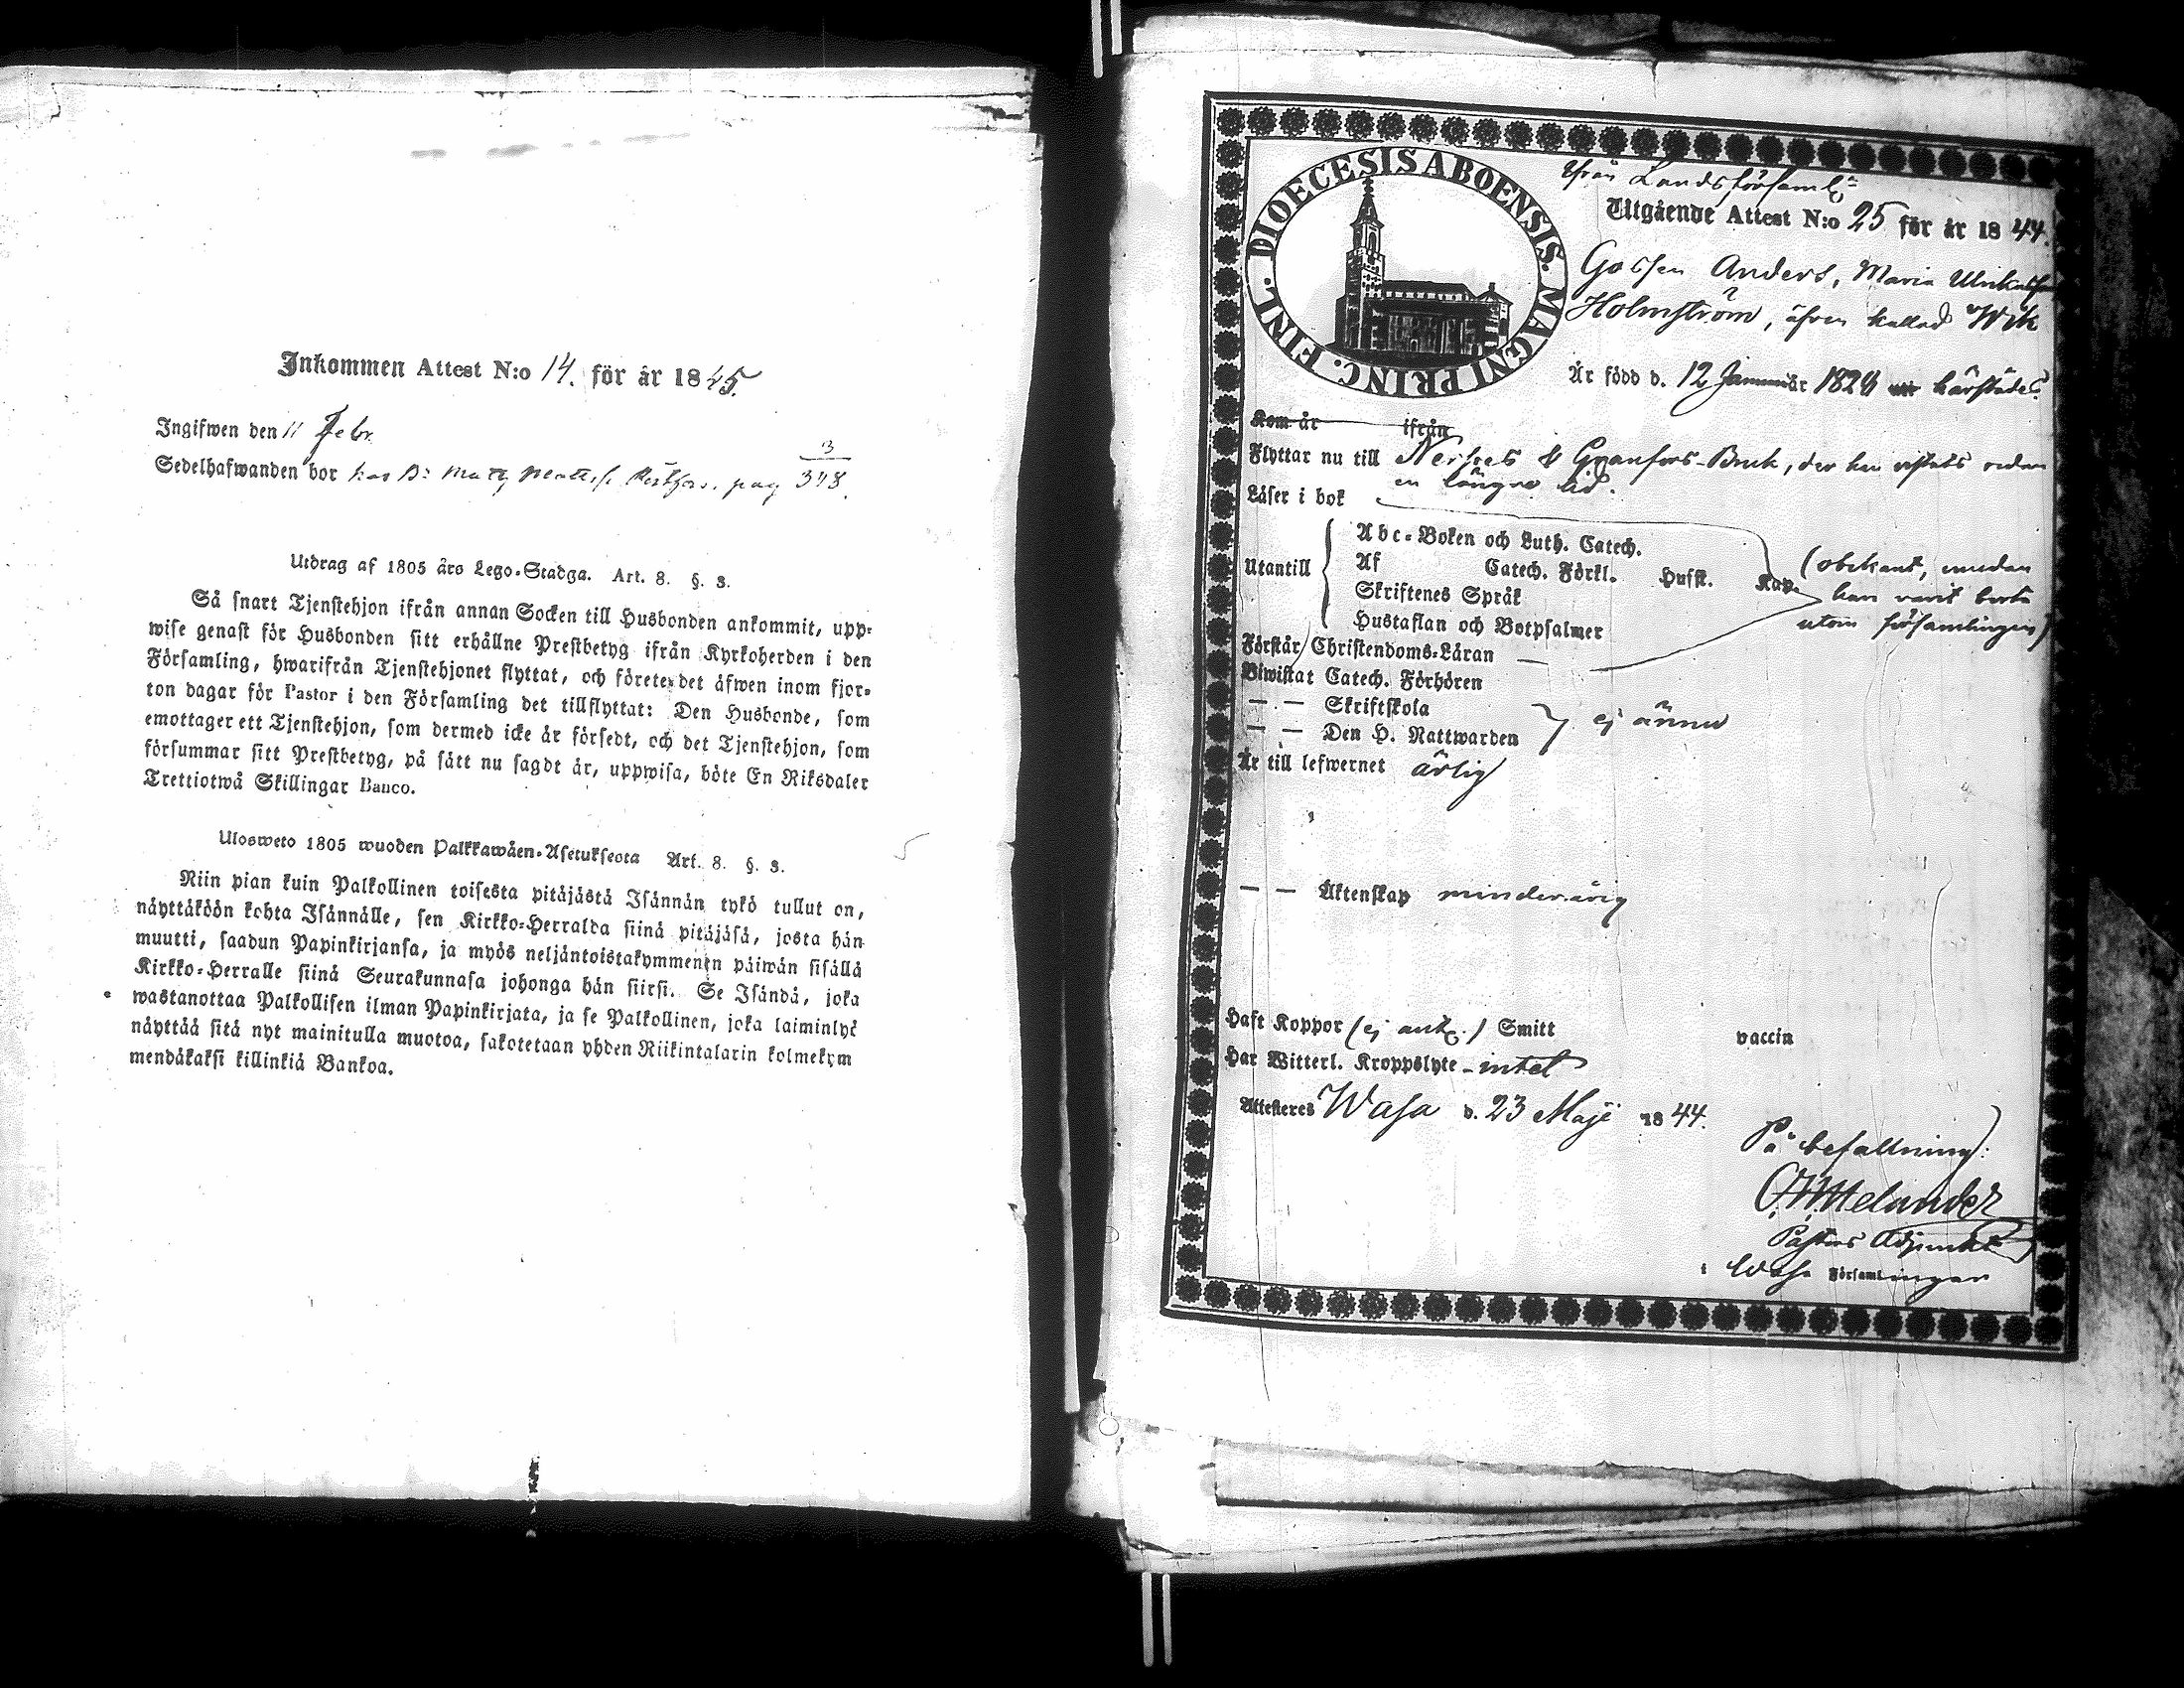 Inkommen Attest N:o 14. för år 1845.
Ingifwen den 11 Febr.
Sedelhafwanden bor hos B: Matts pag 3/348.
Utdrag af 1805 års Lego-Stadga. Art. 8. §. 3.
Så snart Tjenstehjon ifrån annan Socken till Husbonden ankommit, upp-
wise genast för Husbonden sitt erhållne Prestbetyg ifrån Kyrkoherden i den
Församling, hwarifrån Tjenstehjonet flyttat, och förete det äfwen inom fjor-
ton dagar för Pastor i den Församling det tillflyttat: Den Husbonde, som
emottager ett Tjenstehjon, som dermed icke är försedt, och det Tjenstehjon, som
försummar sitt Prestbetyg, på sätt nu sagdt är, uppwisa, böte En Riksdaler
Trettiotwå Skillingar Banco.
Ulosweto 1805 wuoden Palkkawäen-Asetuksesta Art. 8. §. 3.
Niin pian kuin Palkollinen toisesta pitäjästä Isännän tykö tullut on,
näyttäköön kohta Isännälle, sen Kirkko-Herralda siinä pitäjäsä, josta hän
muutti, saadun Papinkirjansa, ja myös neljäntoistakymmenen päiwän sisällä
Kirkko-Herralle siinä Seurakunnasa johonga hän siirsi. Se Isändä, joka
wastanottaa Palkollisen ilman Papinkirjata, ja se Palkollinen, joka laiminlyö
näyttää sitä nyt mainitulla muotoa, sakotetaan yhden Riikintalarin kolmekym
mendäkaksi killinkiä Bankoa.
DIOECESIS ABOENSIS. MAGNI PRINC. FINL.
Ifrån Landsförsaml:
Utgående Attest N:o 25 för år 1844.
Gossen Anders, Maria Ulrikasson
Holmström, äfven kallad Wik
Är född d. 12 Januar 1828 härstädes.
Kom år ifrån
Flyttar nu till Nerpes & Granfors-Bruk, der han vistats redan
en längre tid.
Läser i bok
Abc-Boken och Luth. Catech.
Utantill Af Catech. Förkl. Husst. Kap.
Skriftenes Språk
Hustaflan och Botpsalmer
(obekant, emedan
han varit borta
utom församlingen)
Förstår Christendoms-Läran
Biwistat Catech. Förhören
— — Skriftskola
— — Den H. Nattwarden
ej ännu
Är till lefwernet ärlig
— — Äktenskap minderårig
Haft Koppor (ej ant.) Smitt vaccin
Har Witterl. Kroppslyte - intet
Attesteres Wasa d. 23 Maji 1844.
På befallning:
Melander
Pastors Adjunkt
i Wasa Församlingar